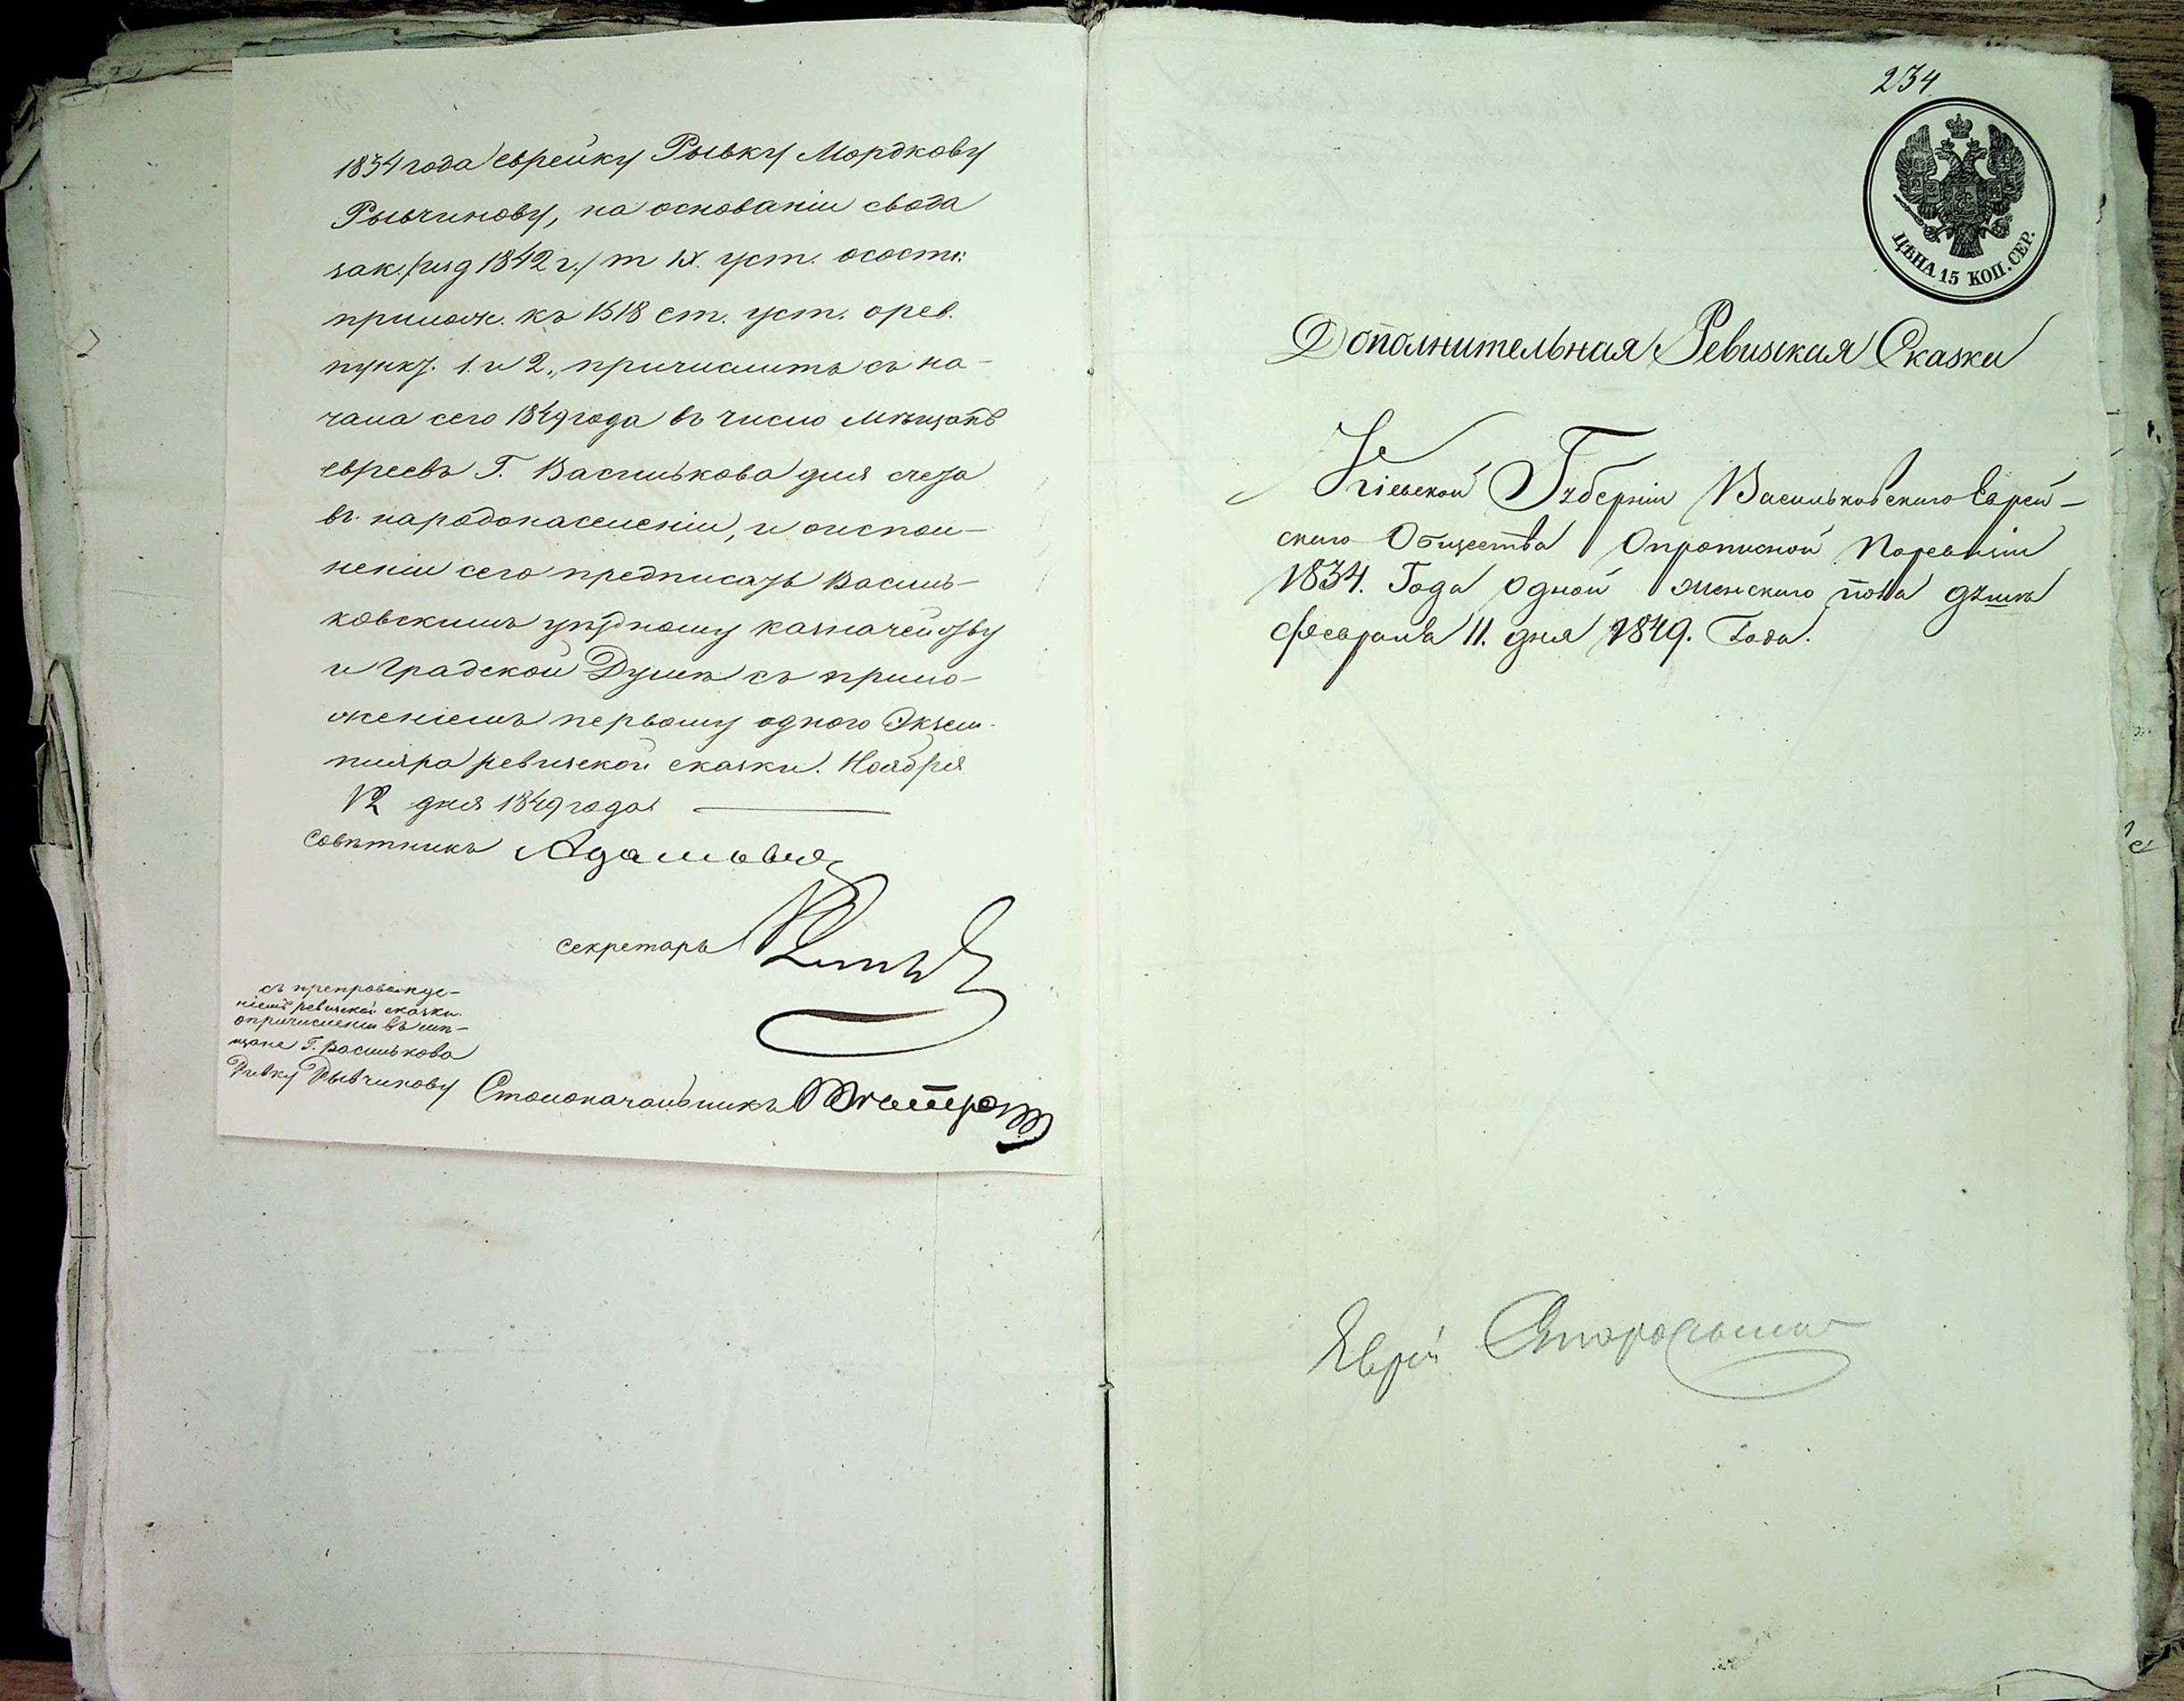 1834 года еврейку Рывку Мордкову
Рывчинову, на основаніи свода
зак. /изд 1842 г./ т IX. уст. о сост:
прилож. къ 1518 ст. уст. о рев.
пунк. 1. и 2., причислить съ на-
чала сего 1849 года въ число мѣщанъ
евреевъ Г. Василькова для счета
въ народонаселеніи, и о испол-
неніи сего предписать Василь-
ковскимъ уѣздному казначейству
и Градской Думѣ съ прило-
женіемъ первому одного Экзем-
пляра ревизской сказки. Ноября
12 дня 1849 года
Совѣтникъ
Секретарь
съ препровожде-
ніемъ ревизской сказки
о причисленіи въ мѣ-
щане Г. Василькова
Рывку Рывчинову Столоначальникъ
234
ЦѢНА 15 КОП. СЕР.
Дополнительная Ревизская Сказка
Кіевской Губерніи Васильковскаго Еврей-
скаго Общества О прописной По ревизіи
1834. Года одной женскаго пола душѣ
февраля 11. дня 1849. Года.